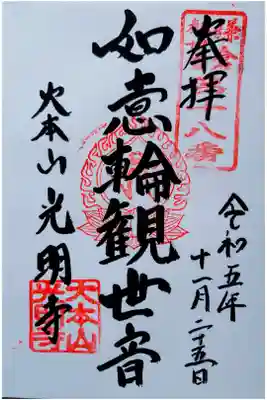 奉拝
令和五年
十一月二十五日
如意輪観世音
天本山光明寺
天本山
光明寺